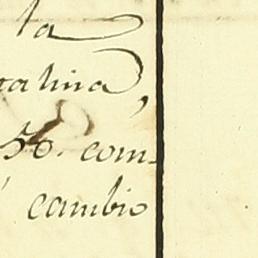 la
talina,
50. com-
cambio